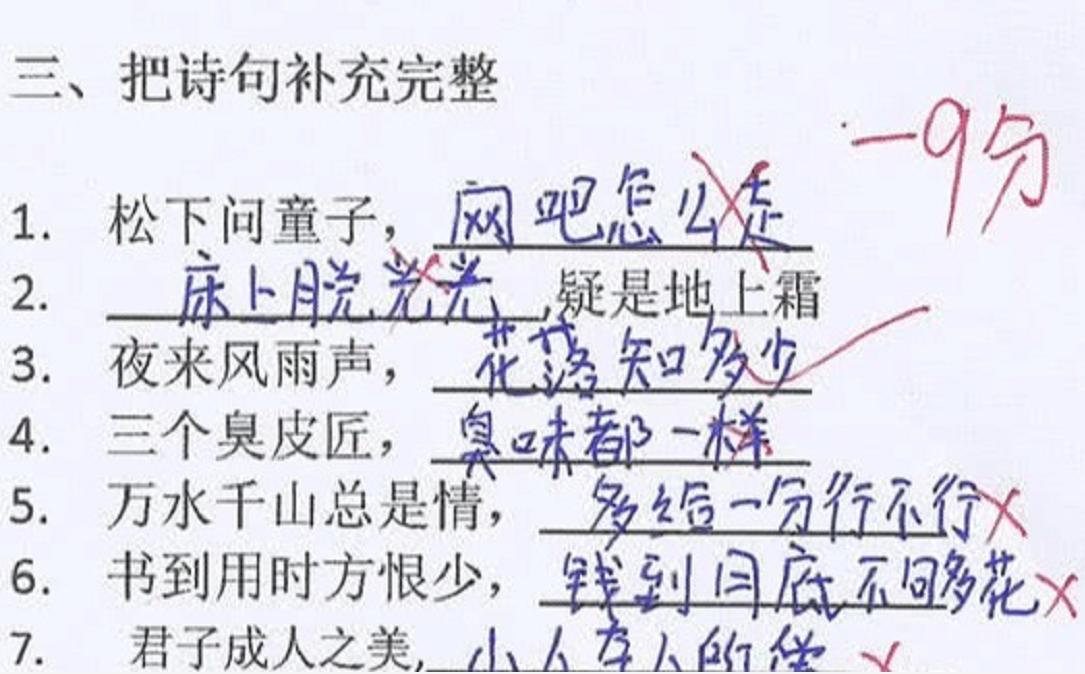 三、把诗句补充完整
-9分
1. 松下问童子,网吧怎么走
2. 床上脱光光,疑是地上霜
3. 夜来风雨声,花落知多少
4. 三个臭皮匠,臭味都一样
5. 万水千山总是情,多给一分行不行
6. 书到用时方恨少,钱到月底不回多花
7. 君子成人之美,小人夺人所